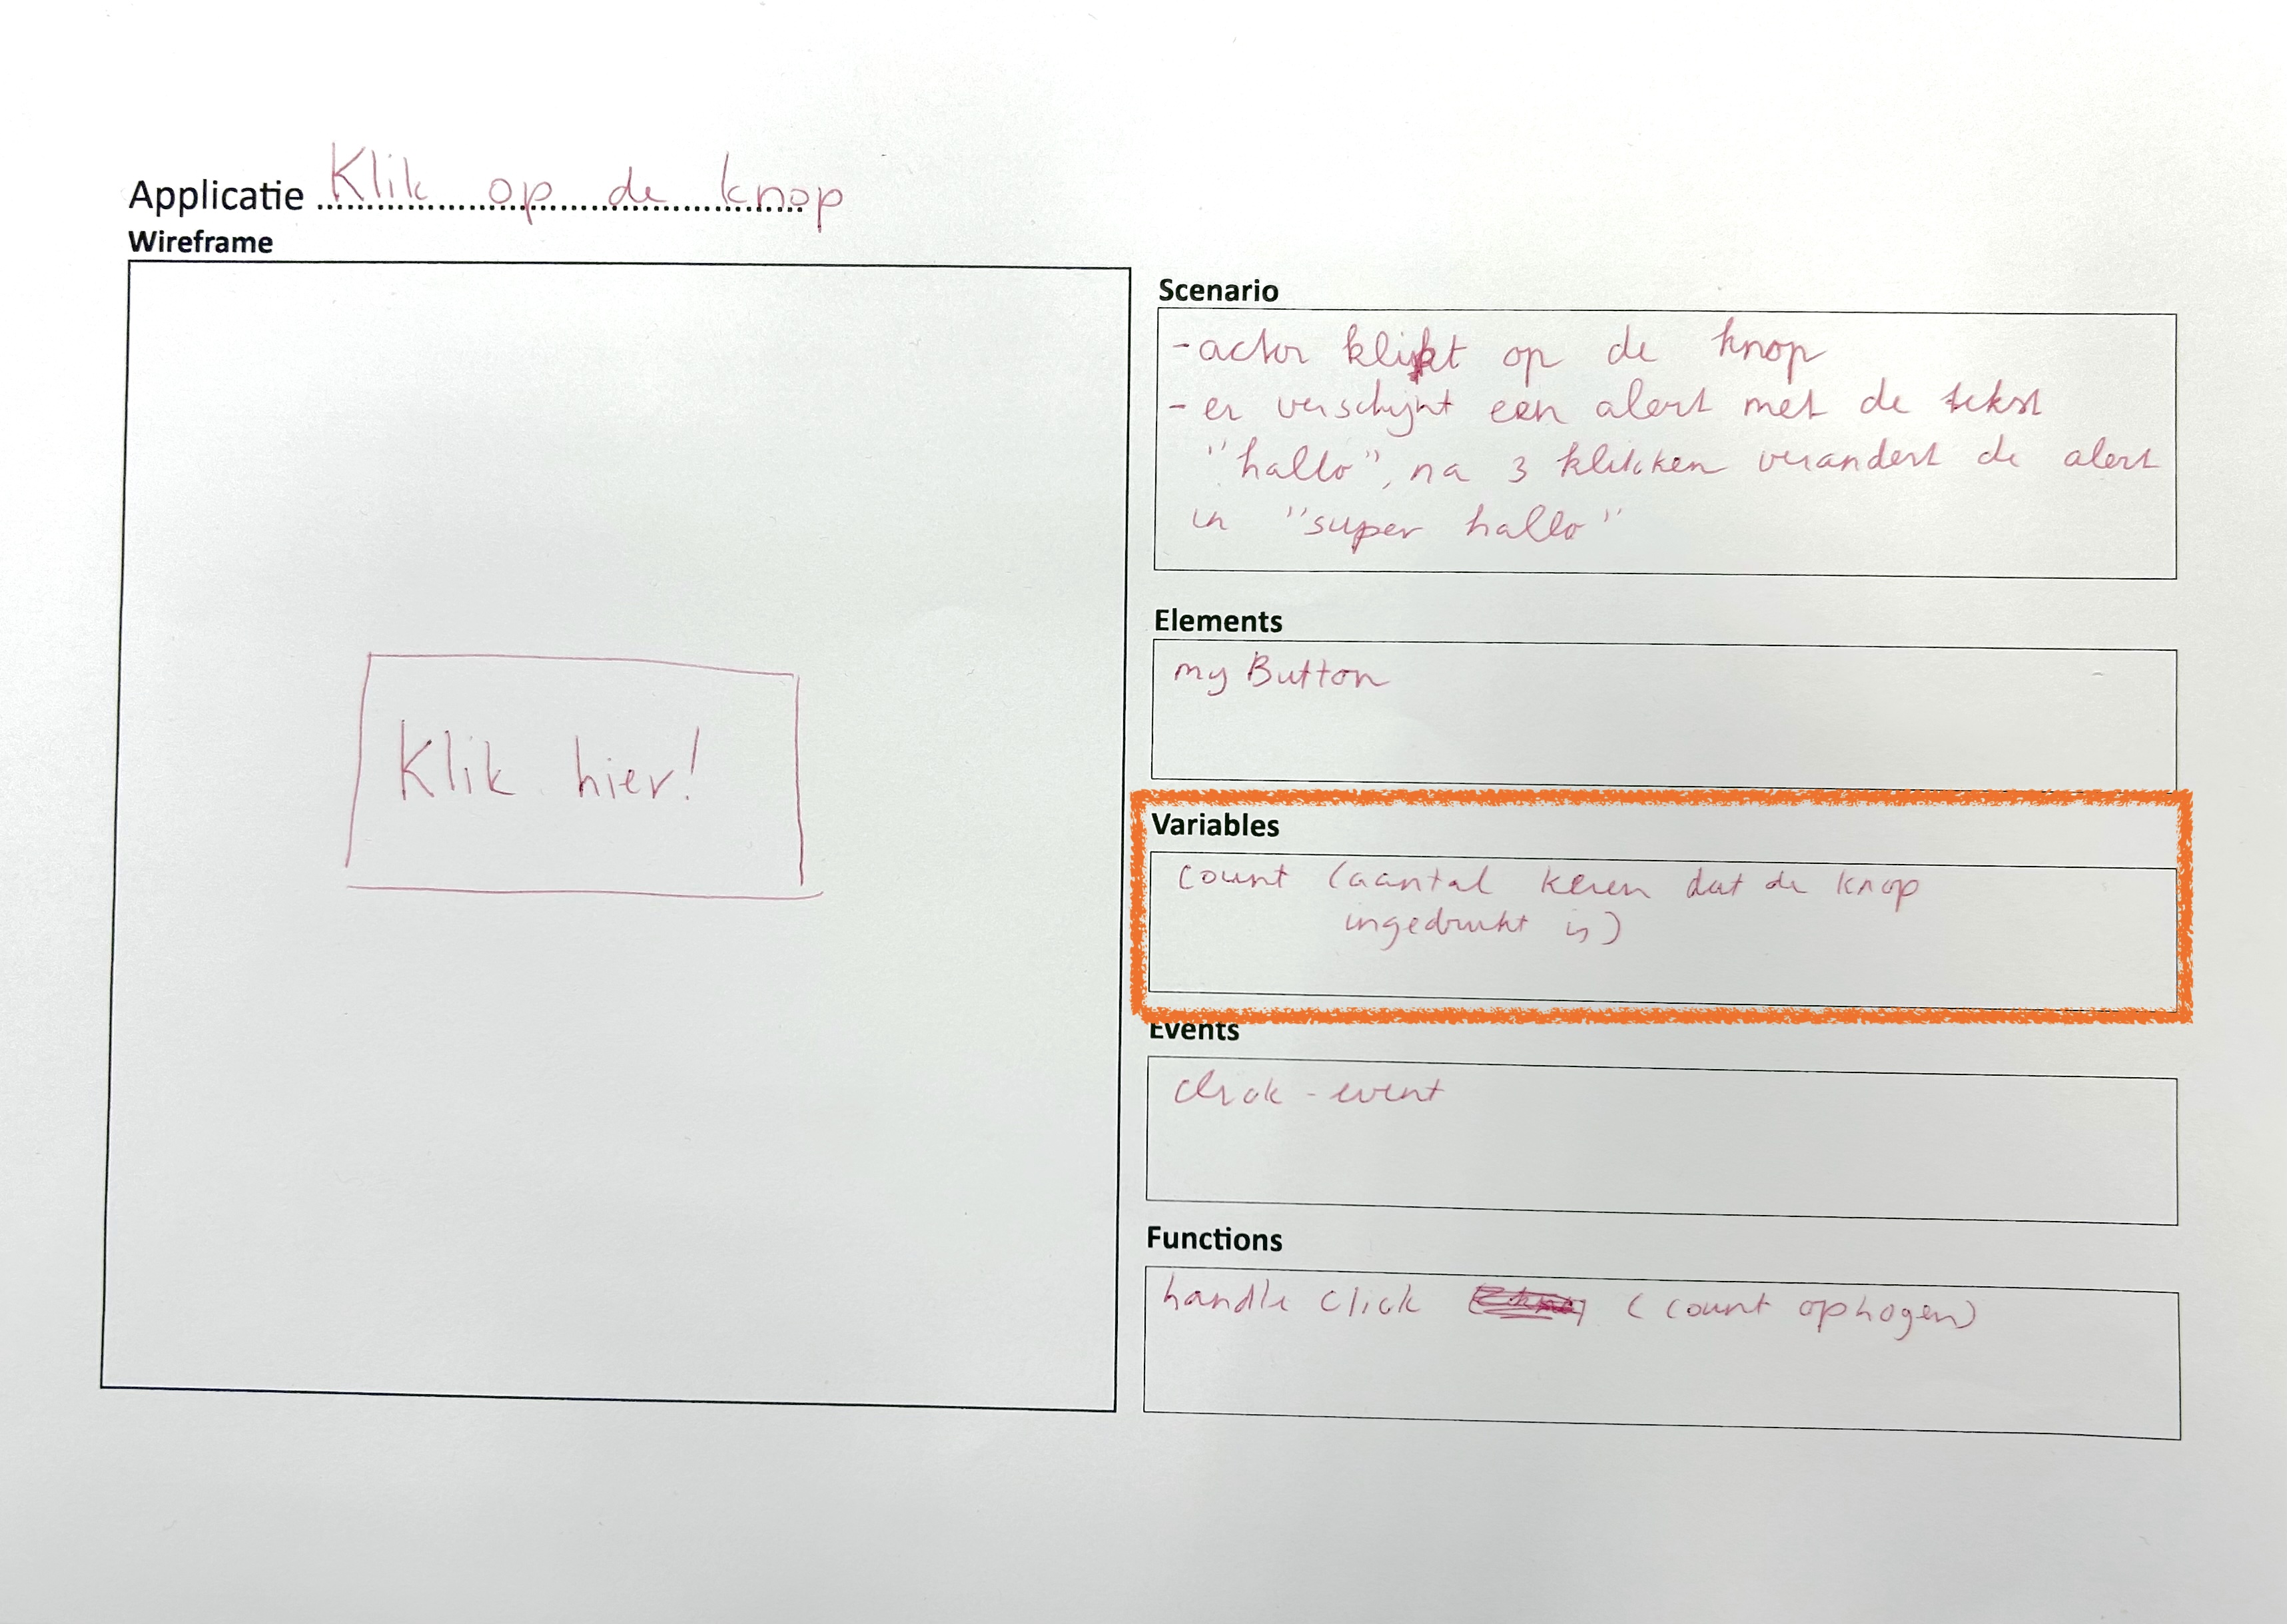 Applicatie Klik op de knop
Wireframe
Klik hier!
Scenario
- actor klikt op de knop
- er verschijnt een alert met de tekst
"hallo", na 3 klikken verandert de alert
in "super hallo"
Elements
my Button
Variables
count (aantal keren dat de knop
ingedrukt is)
Events
click - event
Functions
handle click (count ophogen)